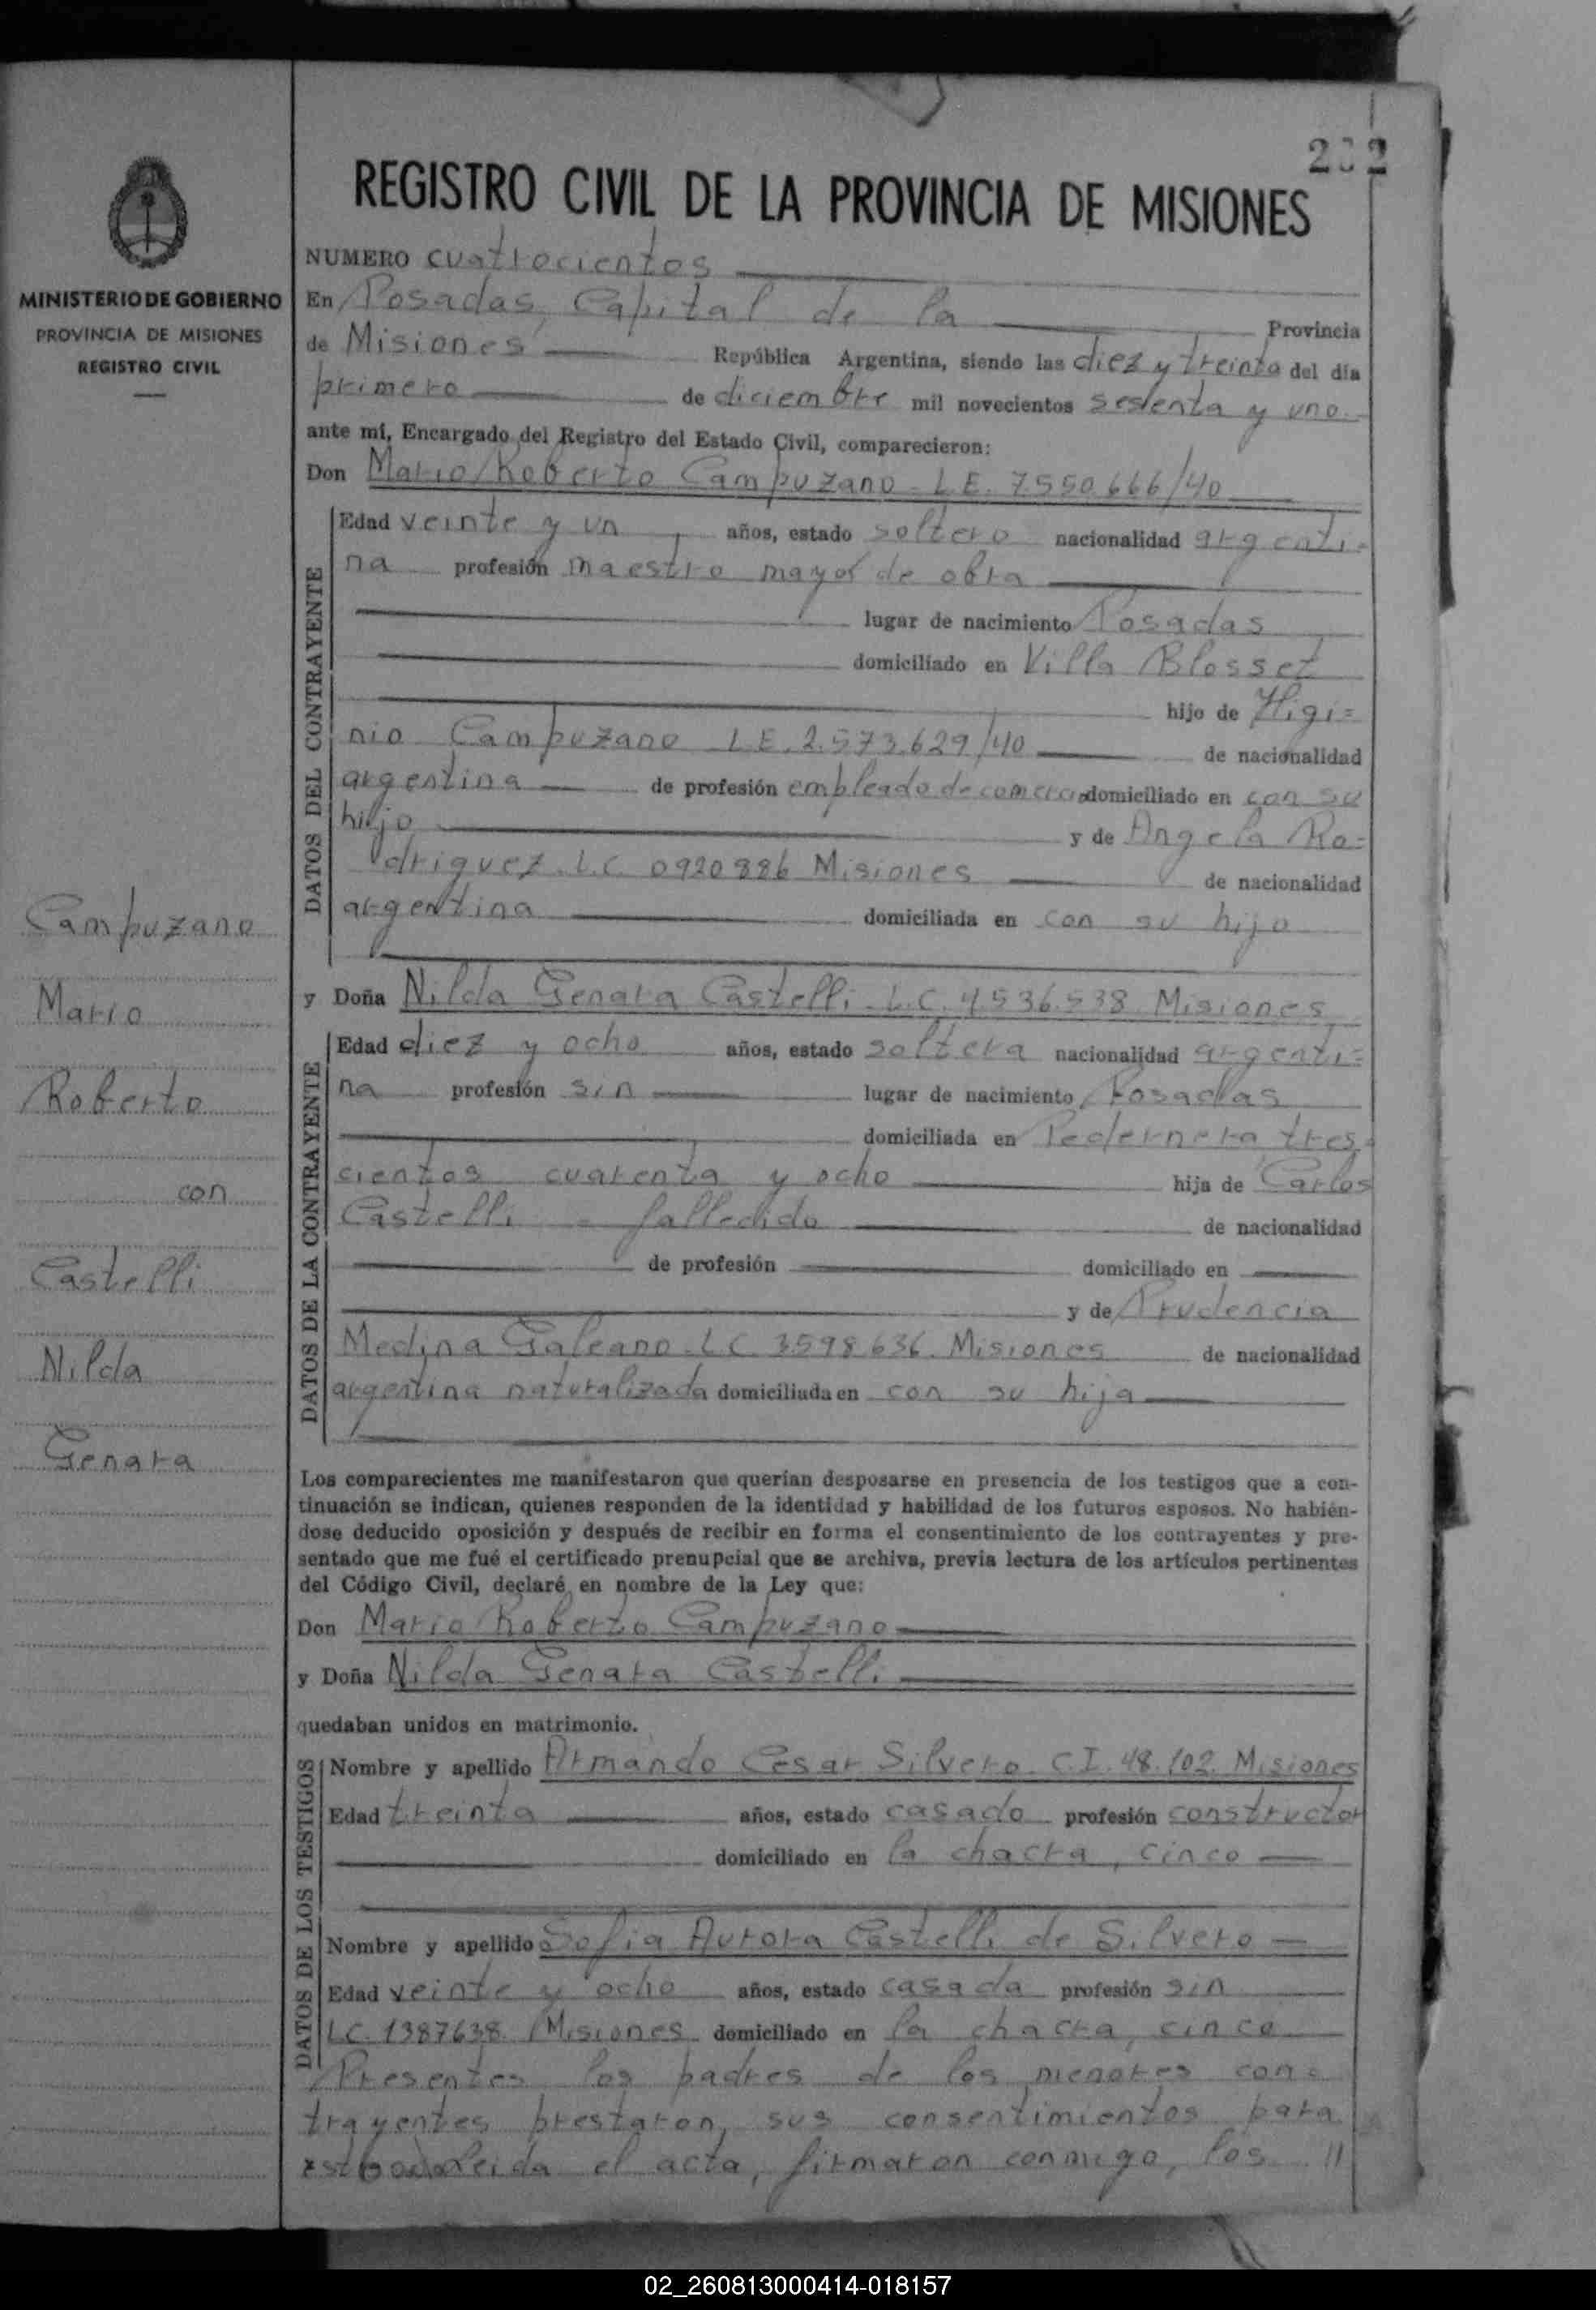 232
REGISTRO CIVIL DE LA PROVINCIA DE MISIONES
MINISTERIO DE GOBIERNO
PROVINCIA DE MISIONES
REGISTRO CIVIL
NUMERO cuatrocientos
En Posadas, Capital de la Provincia
de Misiones República Argentina, siendo las diez y treinta del día
primero de diciembre mil novecientos sesenta y uno
ante mí, Encargado del Registro del Estado Civil, comparecieron:
Don Mario Roberto Campuzano - L.E. 7.550.666/40
DATOS DEL CONTRAYENTE
Edad veinte y un años, estado soltero nacionalidad argenti=
na profesión maestro mayor de obra
lugar de nacimiento Posadas
domiciliado en Villa Blosset
hijo de Higi=
nio Campuzano L.E. 2.573.629/40 de nacionalidad
argentina de profesión empleado de comercio domiciliado en con su
hijo y de Angela Ro=
driguez. L.C. 0920886 Misiones de nacionalidad
argentina domiciliada en con su hijo
y Doña Nilda Genara Castelli. L.C. 4.536.538 Misiones
DATOS DE LA CONTRAYENTE
Edad diez y ocho años, estado soltera nacionalidad argenti=
na profesión sin lugar de nacimiento Posadas
domiciliada en Pedernera tres=
cientos cuarenta y ocho hija de Carlos
Castelli - fallecido de nacionalidad
de profesión domiciliado en
y de Prudencia
Medina Galeano. L.C. 3598.636. Misiones de nacionalidad
argentina naturalizada domiciliada en con su hija
Los comparecientes me manifestaron que querían desposarse en presencia de los testigos que a con-
tinuación se indican, quienes responden de la identidad y habilidad de los futuros esposos. No habién-
dose deducido oposición y después de recibir en forma el consentimiento de los contrayentes y pre-
sentado que me fué el certificado prenupcial que se archiva, previa lectura de los artículos pertinentes
del Código Civil, declaré en nombre de la Ley que:
Don Mario Roberto Campuzano
y Doña Nilda Genara Castelli
quedaban unidos en matrimonio.
DATOS DE LOS TESTIGOS
Nombre y apellido Armando Cesar Silvero. C.I. 48.102. Misiones
Edad treinta años, estado casado profesión constructor
domiciliado en la chacra, cinco
Nombre y apellido Sofia Aurora Castelli de Silvero
Edad veinte y ocho años, estado casada profesión sin
LC. 1387638. Misiones domiciliado en la chacra, cinco
Presentes los padres de los menores con=
trayentes prestaron, sus consentimientos para
leida el acta, firmaron conmigo, los //
Campuzano
Mario
Roberto
con
Castelli
Nilda
Genara
02_260813000414-018157